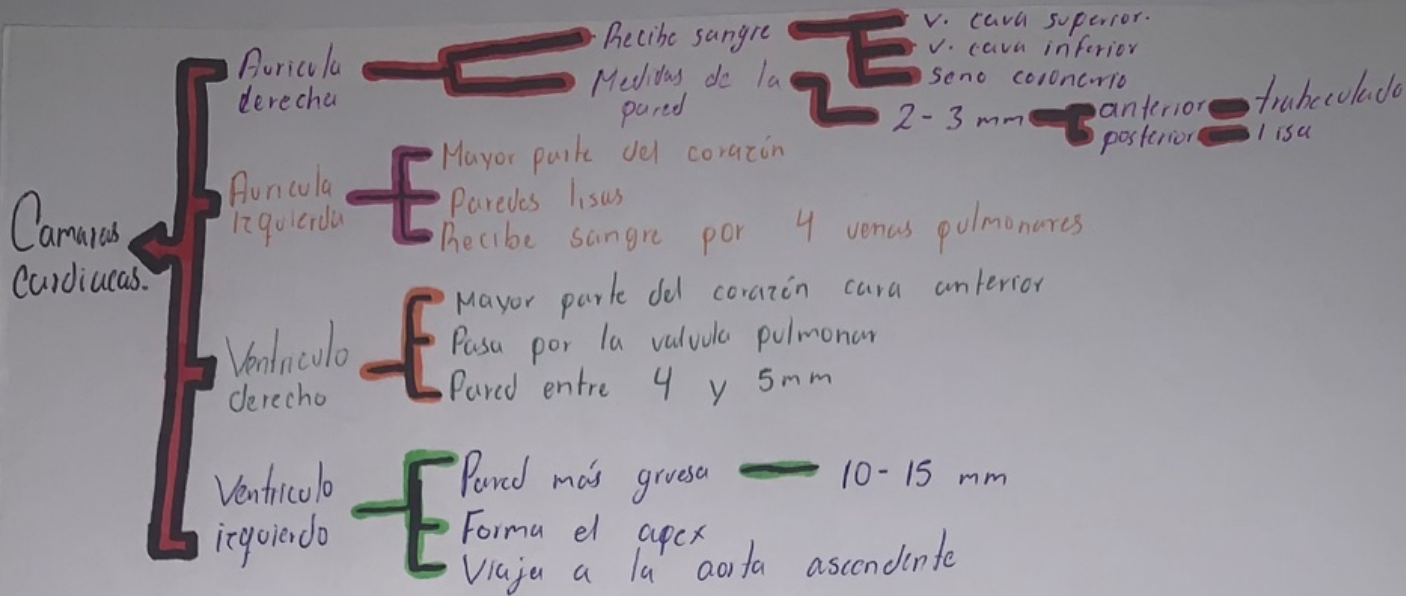 Camaras
Cardiacas.
Auricula
derecha
Recibe sangre
v. cava superior.
v. cava inferior
seno coronario
Medidas de la
pared
2-3 mm
anterior
trabeculado
posterior
lisa
Auricula
izquierda
Mayor parte del corazón
Paredes lisas
Recibe sangre por 4 venas pulmonares
Ventriculo
derecho
Mayor parte del corazón cara anterior
Pasa por la valvula pulmonar
Pared entre 4 y 5mm
Ventriculo
izquierdo
Pared más gruesa
10-15 mm
Forma el apex
Viaja a la aorta ascendente